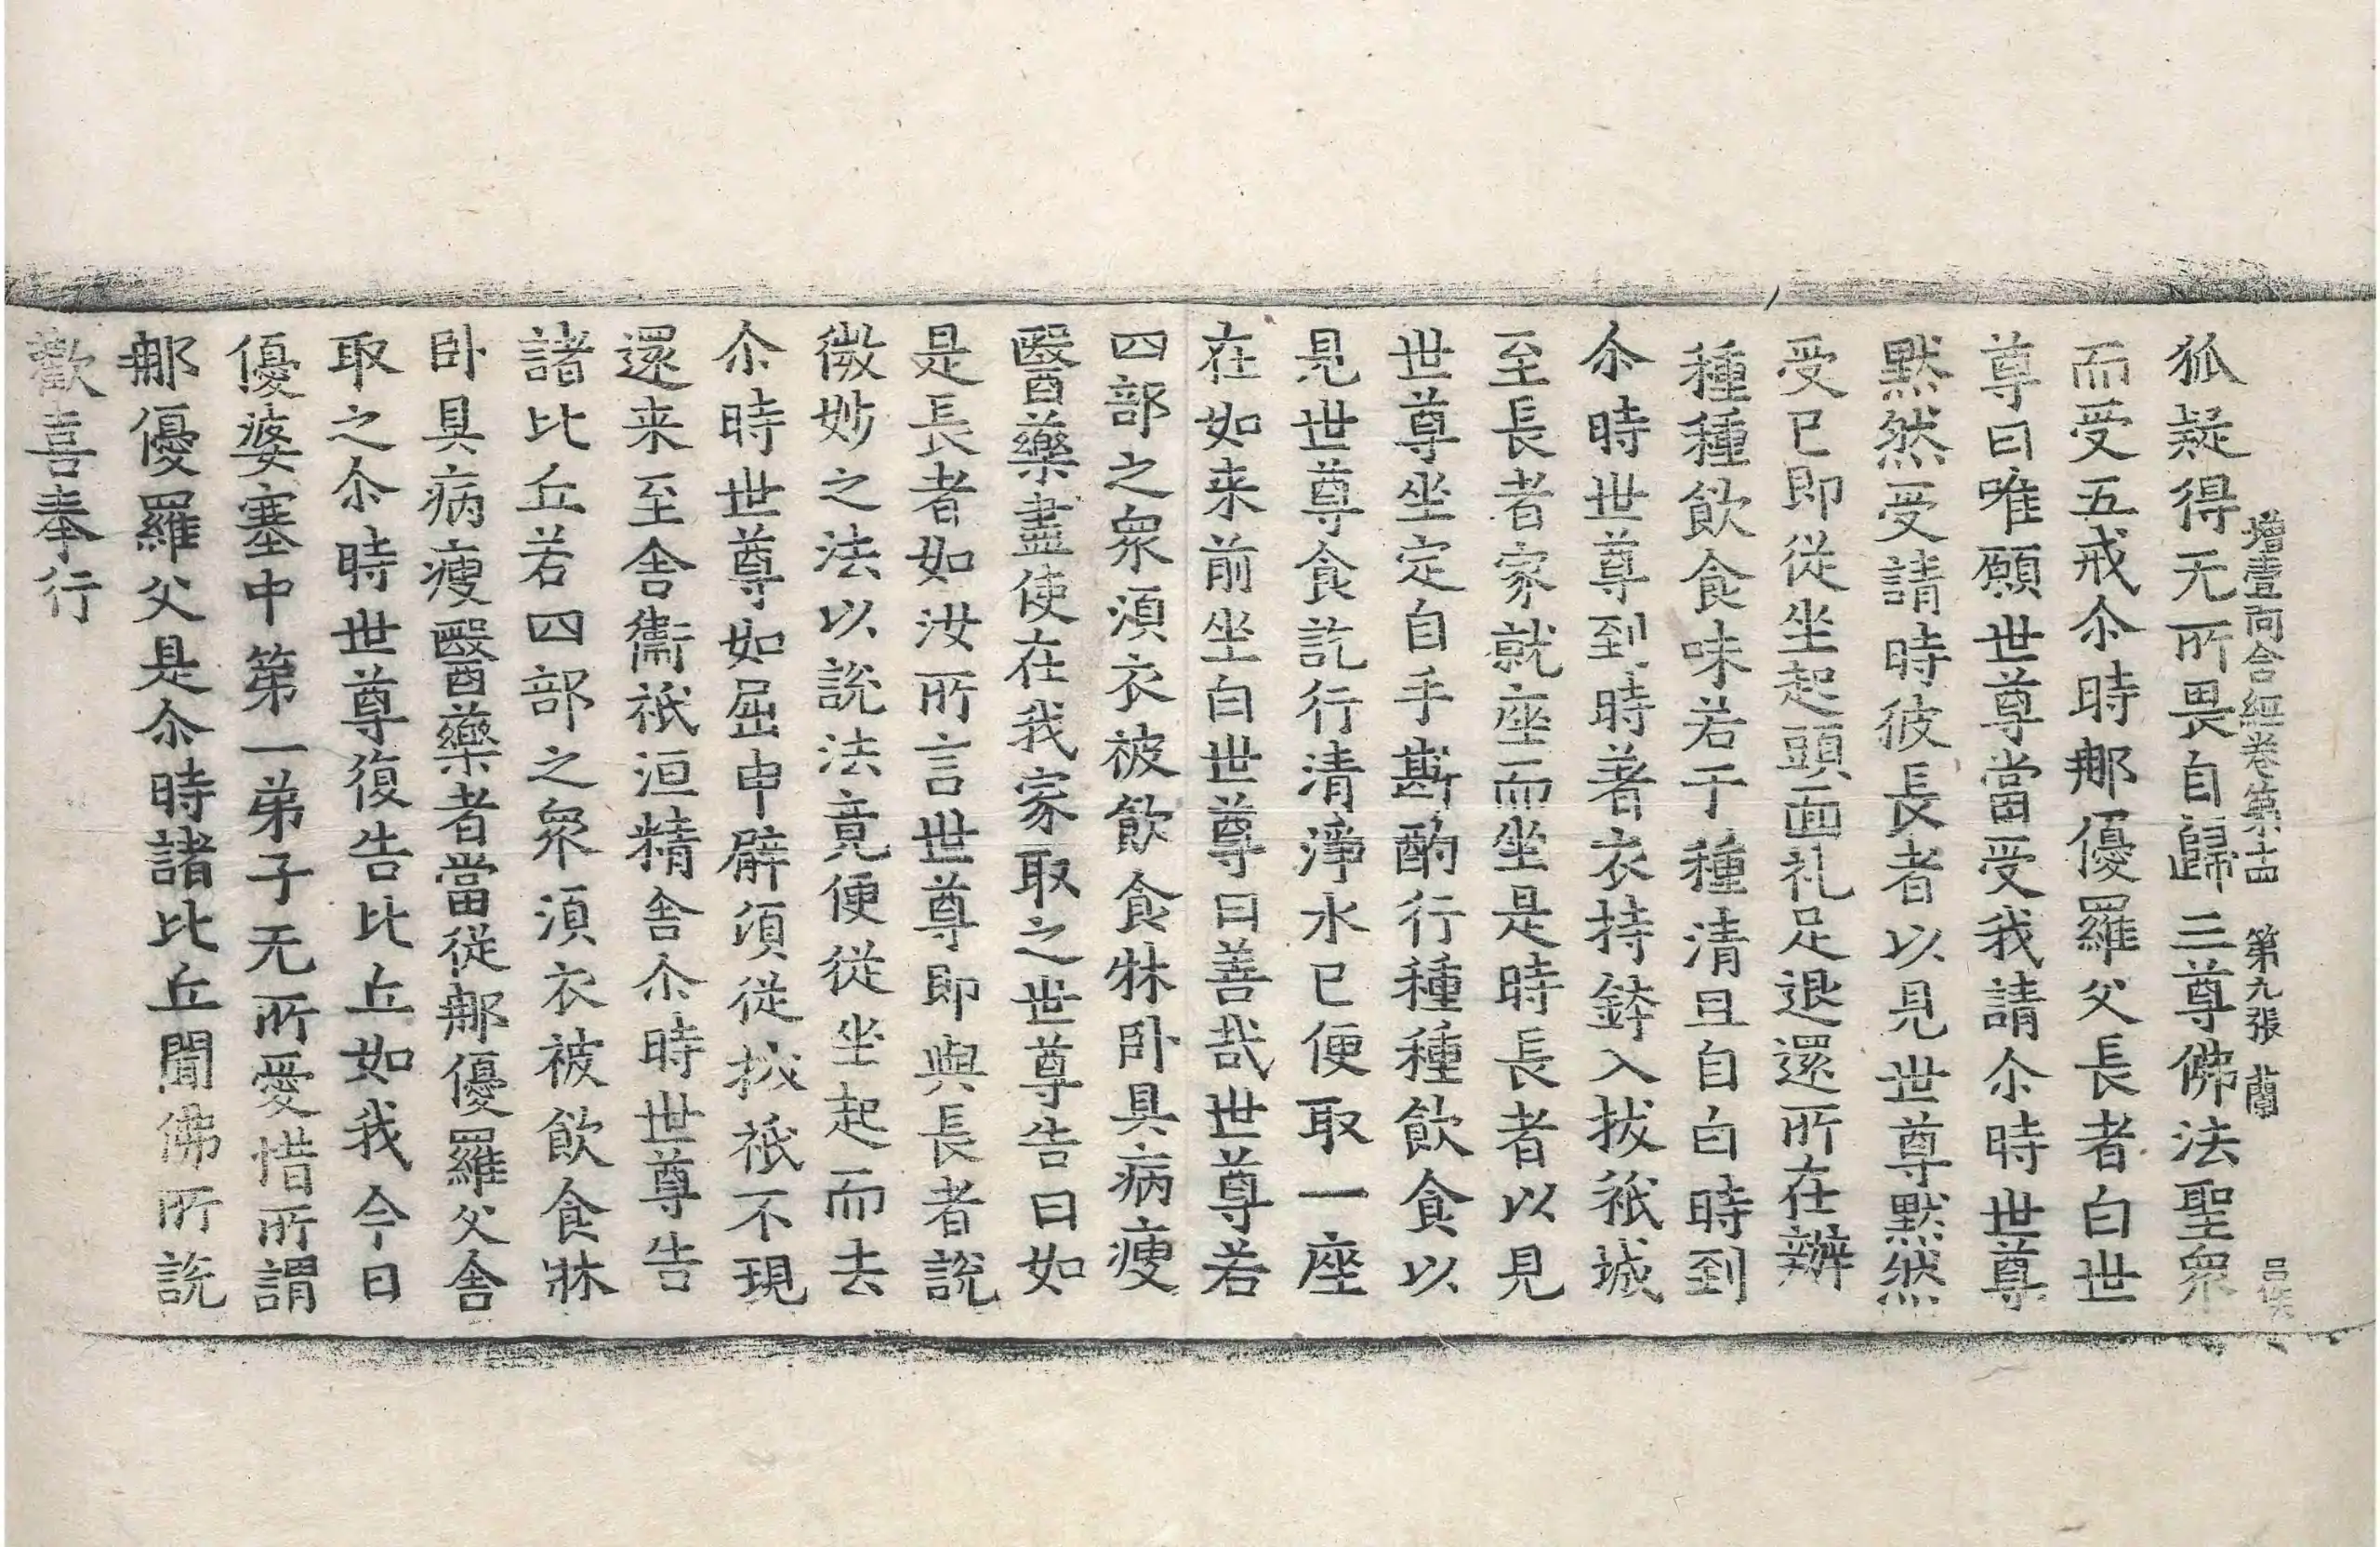 增壹阿含經卷第十四　第九張　蘭
狐疑得无所畏自歸三尊佛法聖眾
而受五戒尒時郍優羅父長者白世
尊曰唯願世尊當受我請尒時世尊
默然受請時彼長者以見世尊默然
受已即從坐起頭面礼足退還所在辦
種種飲食味若干種清旦自白時到
尒時世尊到時著衣持鉢入拔祇城
至長者家就座而坐是時長者以見
世尊坐定自手斟酌行種種飲食以
見世尊食訖行清淨水已便取一座
在如来前坐白世尊曰善哉世尊若
四部之眾須衣被飲食牀卧具病瘦
醫藥盡使在我家取之世尊告曰如
是長者如汝所言世尊即與長者說
微妙之法以說法竟便從坐起而去
尒時世尊如屈申臂頃從拔祇不現
還来至舍衛祇洹精舍尒時世尊告
諸比丘若四部之眾須衣被飲食牀
卧具病瘦醫藥者當從郍優羅父舍
取之尒時世尊復告比丘如我今日
優婆塞中第一弟子无所愛惜所謂
郍優羅父是尒時諸比丘聞佛所說
歡喜奉行